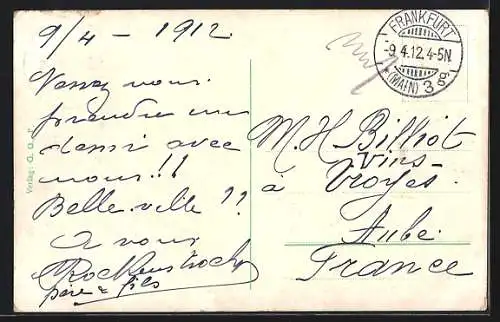 9/4 - 1912
Venez vous
prendre un
dessi avec
nous!!
Belleville!!
A vous
Rockenstroch
père & fils
Verlag: G. G. F.
FRANKFURT
-9.4.12.4-5N.
(MAIN) 3 gg.
M. H. Billiot
vins
à Troyes.
Aube.
France